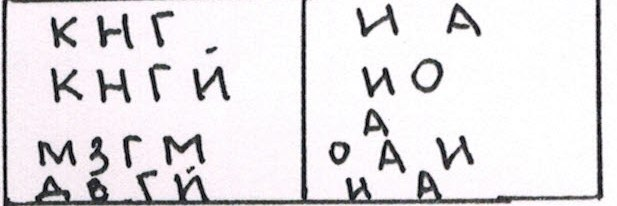 КНГ
КНГЙ
МЗГМ
ДВГЙ
И А
И О
А
О А И
И А